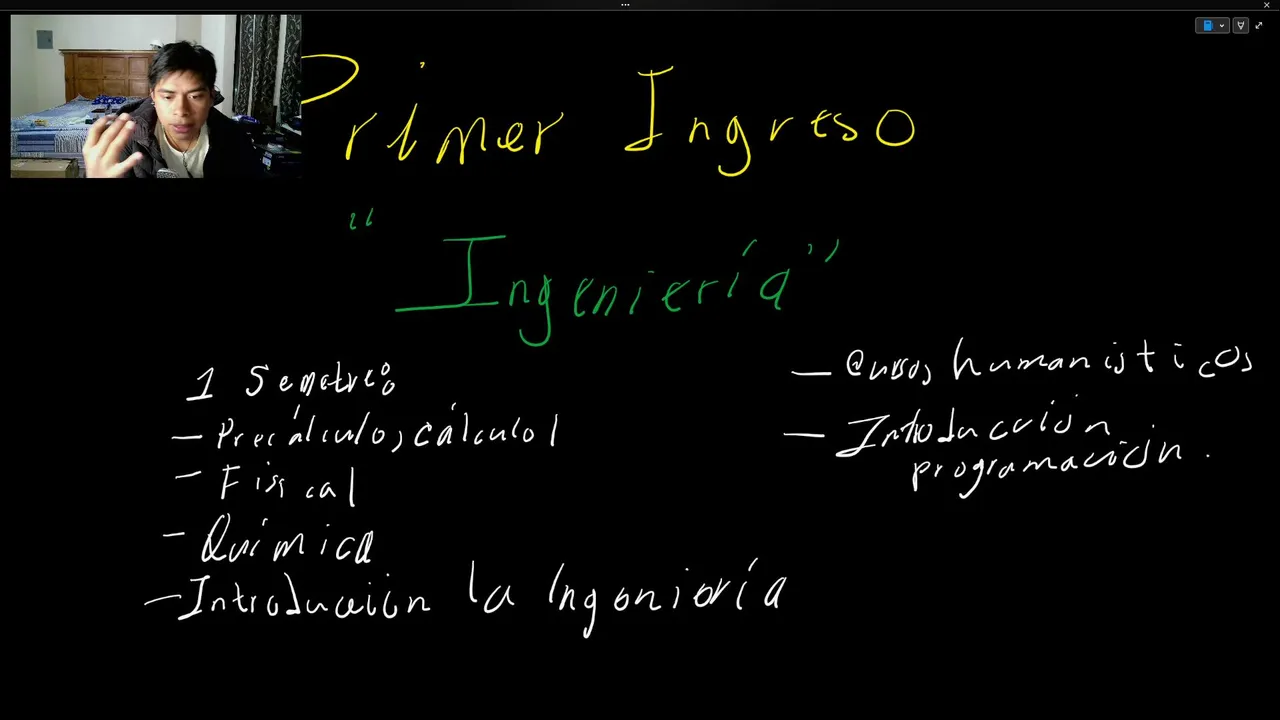 Primer Ingreso
"Ingeniería"
1 Semetre:
- Precálculo, cálculo 1
- Fisica 1
- Química
- Introducción la Ingeniería
- Cursos humanisticos
- Introducción
programación.